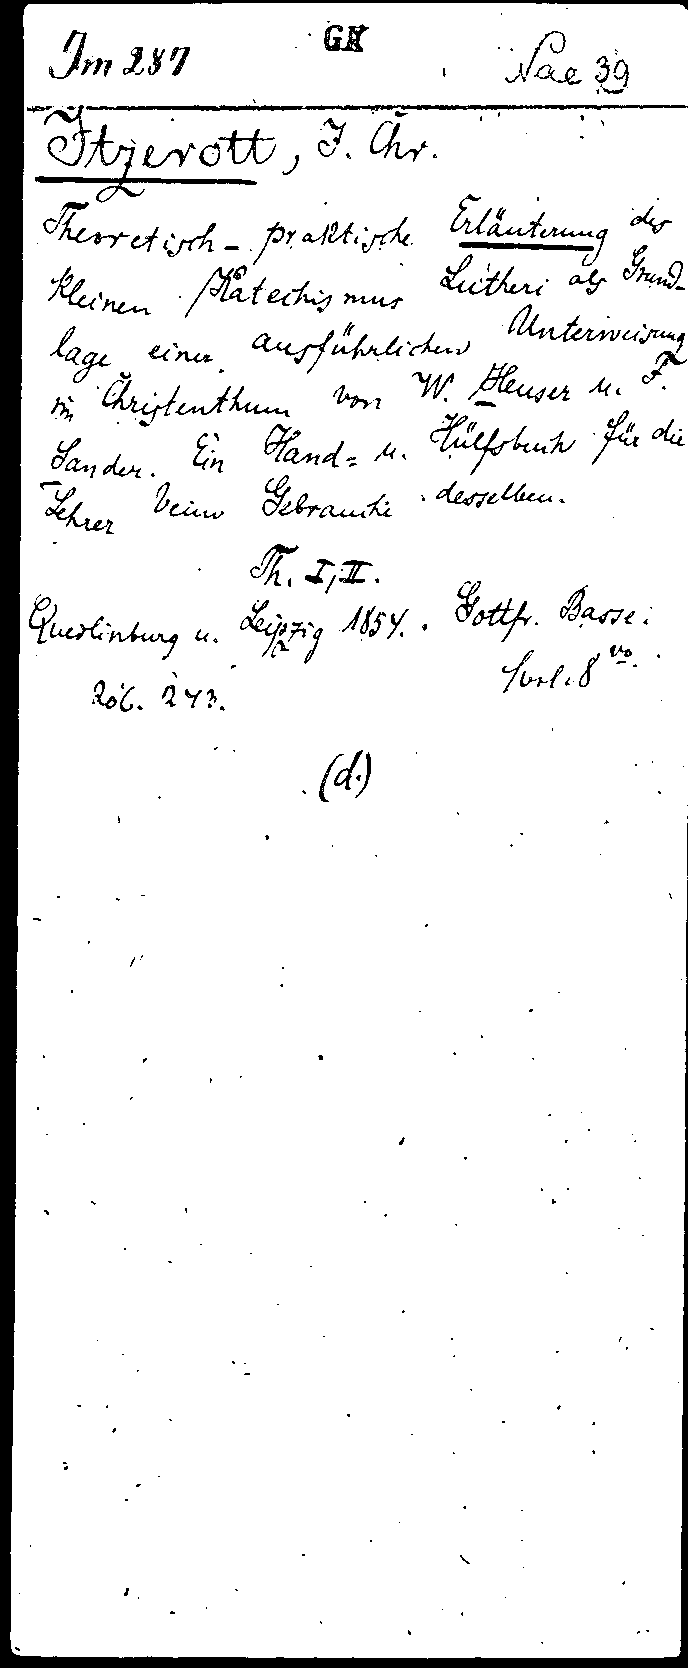 Im 287 GK Nae 39
Itzerott, J. Chr.
Theoretisch-praktische Erläuterung des
kleinen Katechismus Lutheri als Grund-
lage einer ausführlichen Unterweisung
im Christenthum von W. Heuser u. F.
Sander. Ein Hand- u. Hülfsbuch für die
Lehrer beim Gebrauche desselben.
Th. I, II.
Quedlinburg u. Leipzig 1854. Gottfr. Basse.
206. 243. 1 vol. 8vo.
(d.)